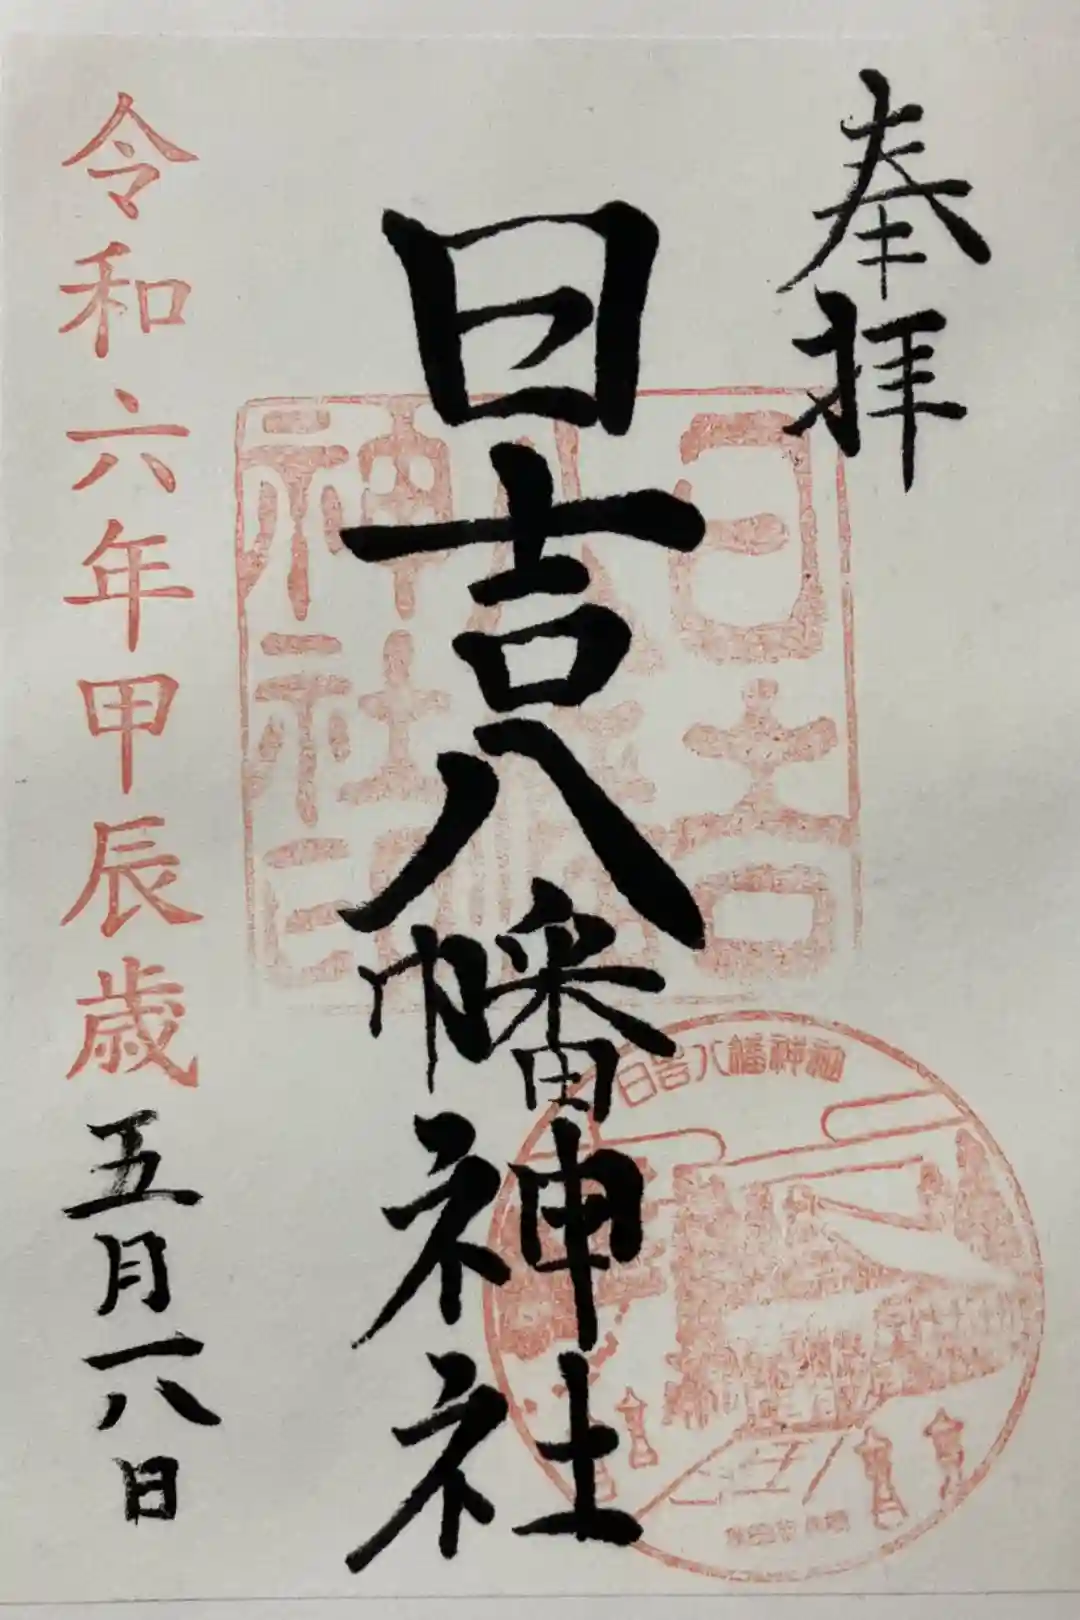 奉拝
日吉八幡神社
日吉八幡神社印
日吉八幡神社
令和六年甲辰歳五月一八日